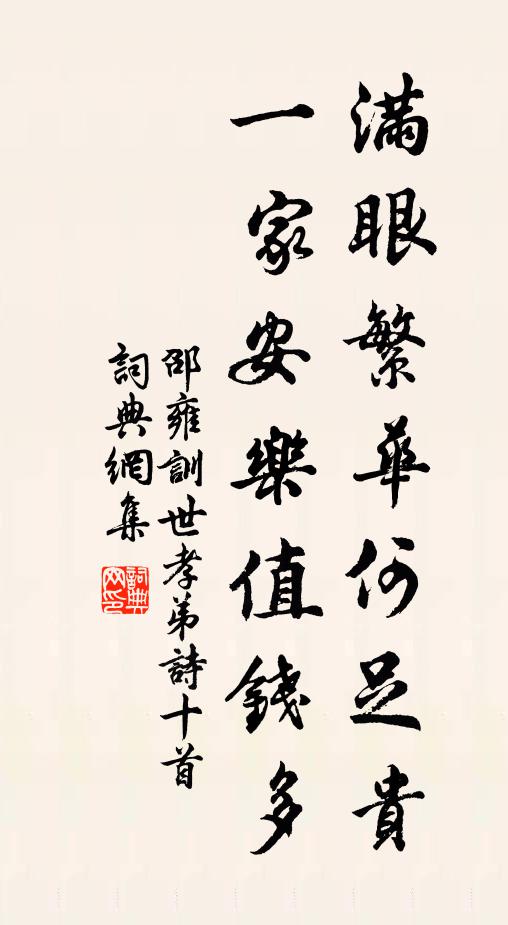 滿眼繁華何足貴
一家安樂值錢多
邵雍訓世孝弟詩十首
詞典網集
詞典網印